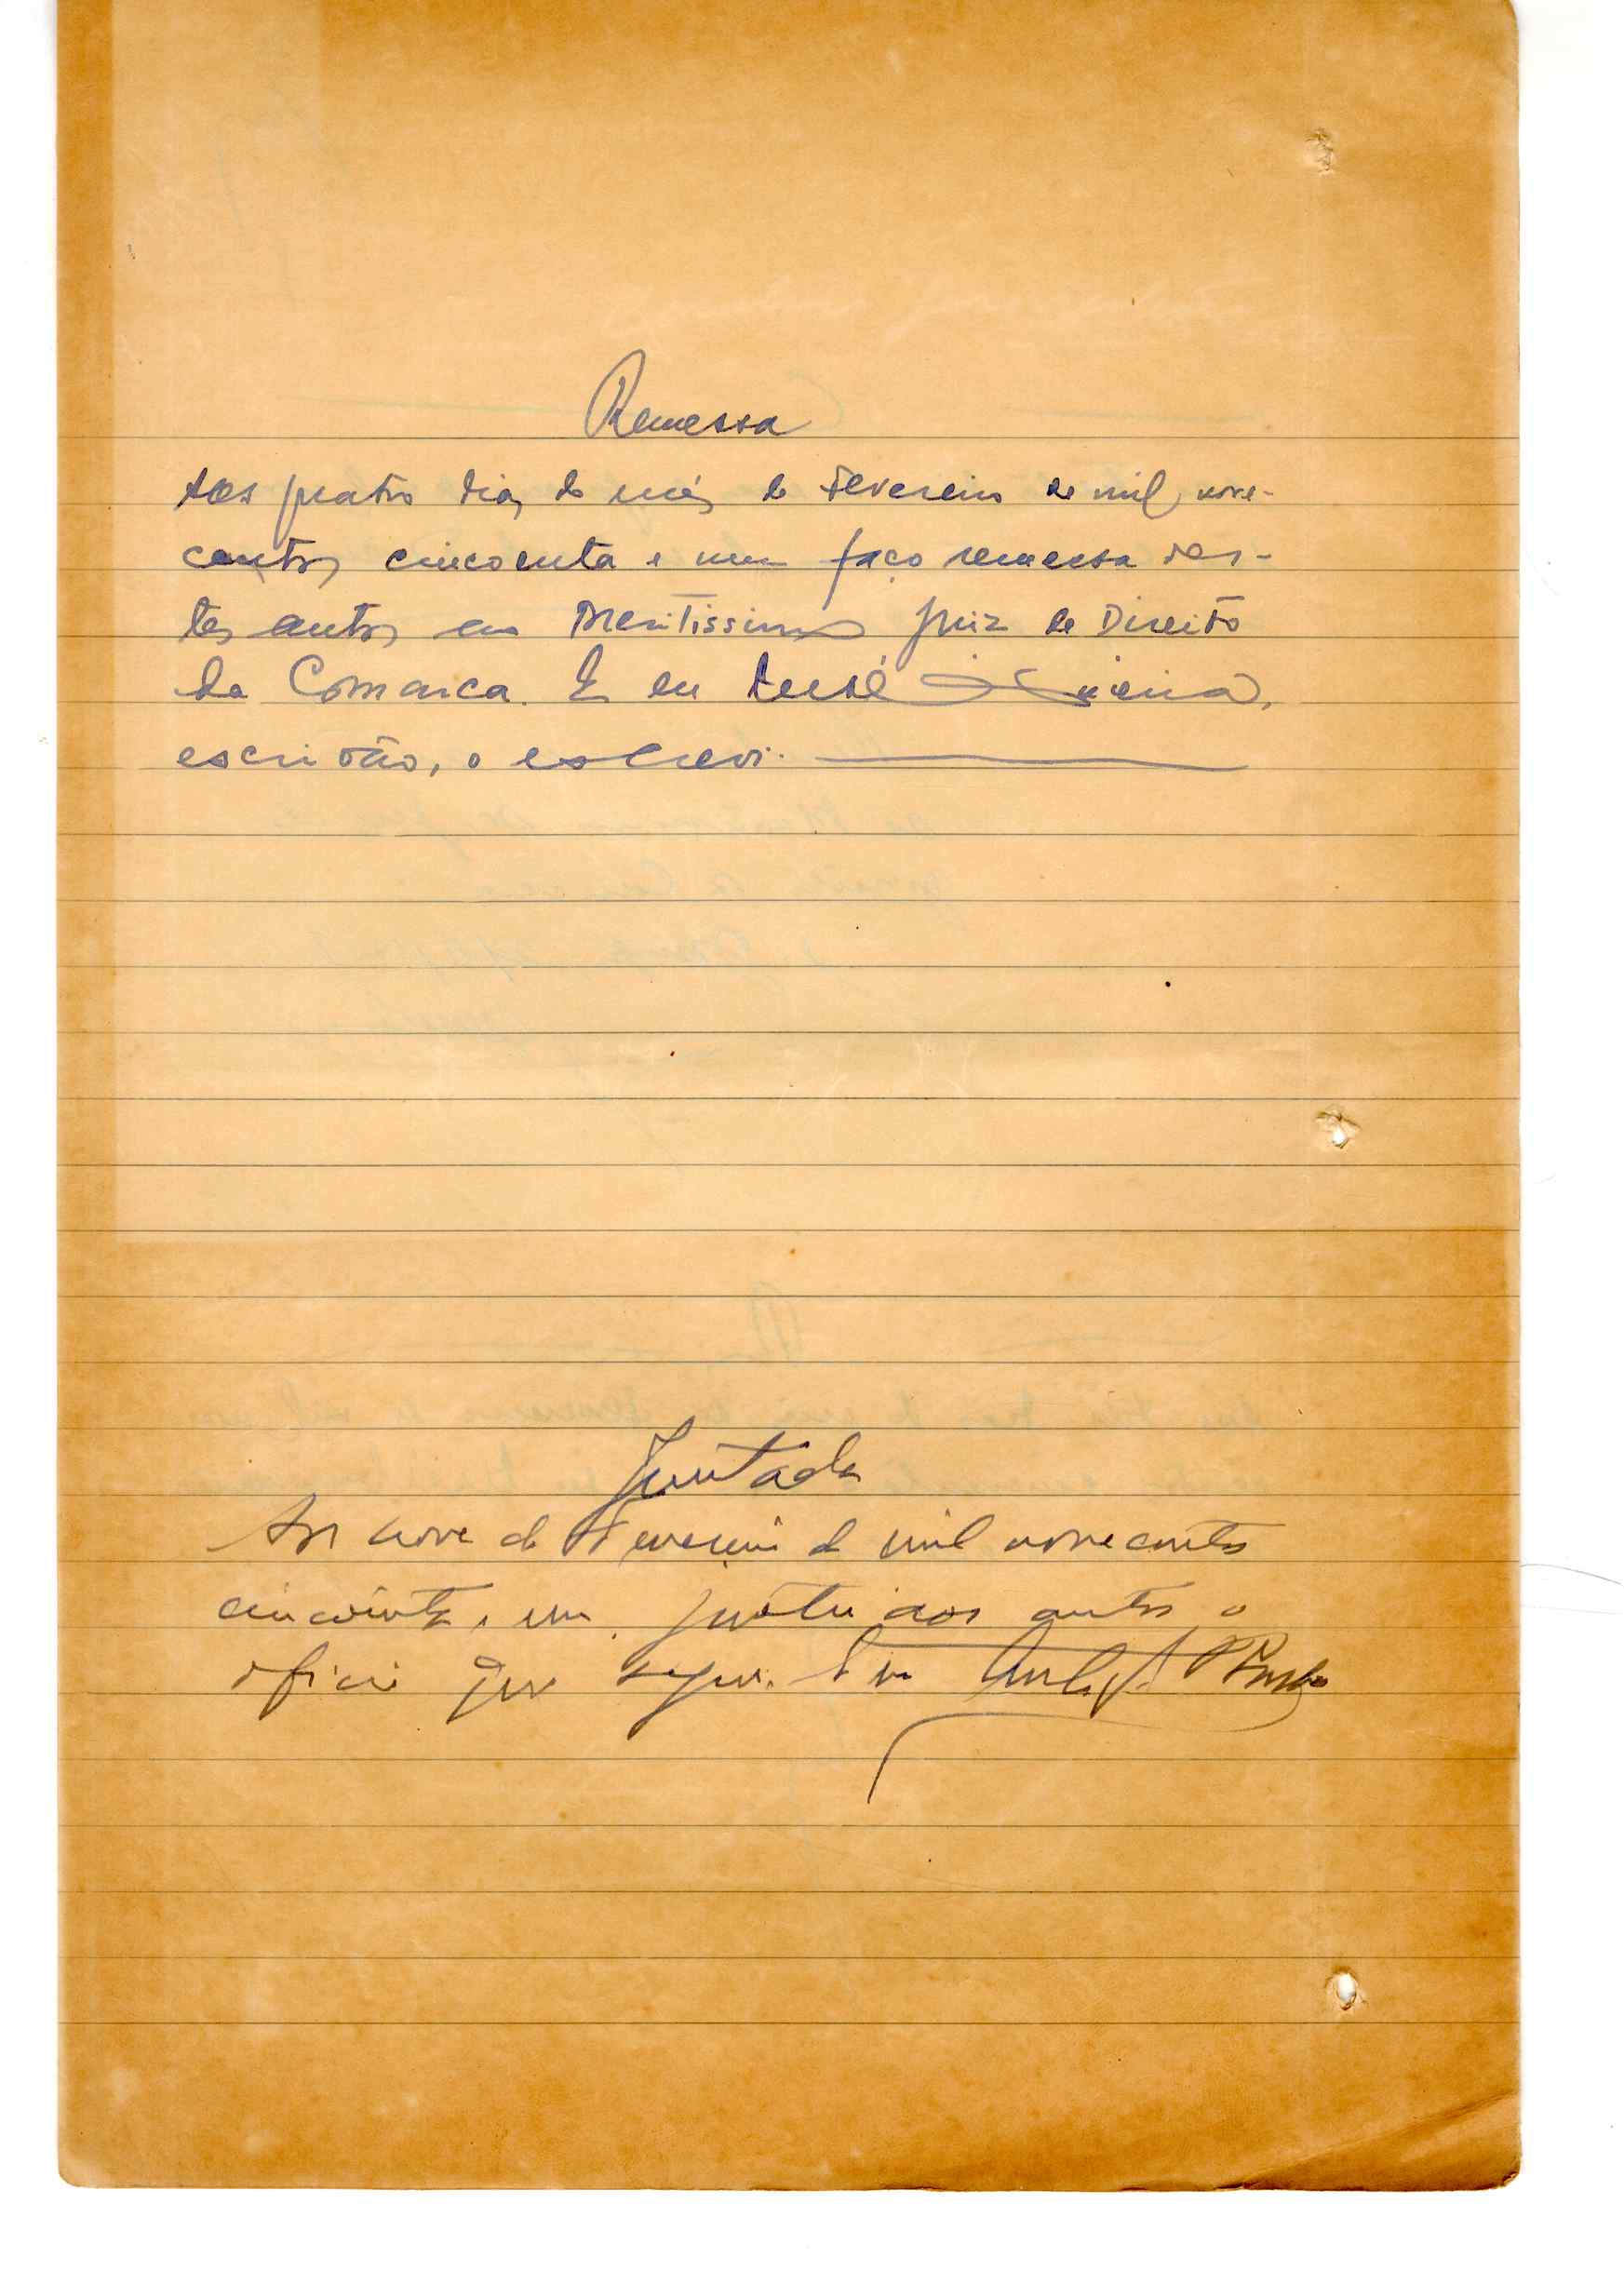 Remessa
Aos quatro dias do mês de Fevereiro de mil nove-
centos cincoenta e um faço remessa des-
tes autos ao Meritissimo Juiz de Direito
da Comarca. E eu
escrivão, o escrevi.
Juntada
Aos nove de Fevereiro de mil novecentos
cincoenta e um, juntei aos autos o
oficio que segue. Eu